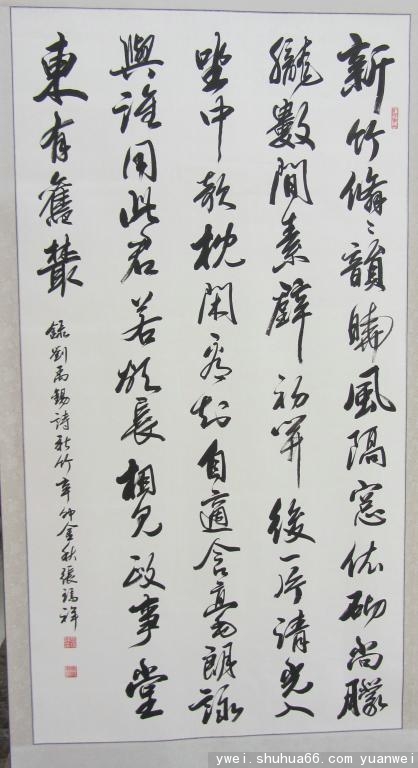 新竹翛〻韻曉風隔窓依砌尚朦
朧數間素壁初開後一片清光入
坐中欹枕閑看知自適含毫朗詠
與誰同此君若欲長相見政事堂
東有舊叢
錄劉禹錫詩新竹辛卯金秋張瑞祥
ywei.shuhua66.com yuanwei